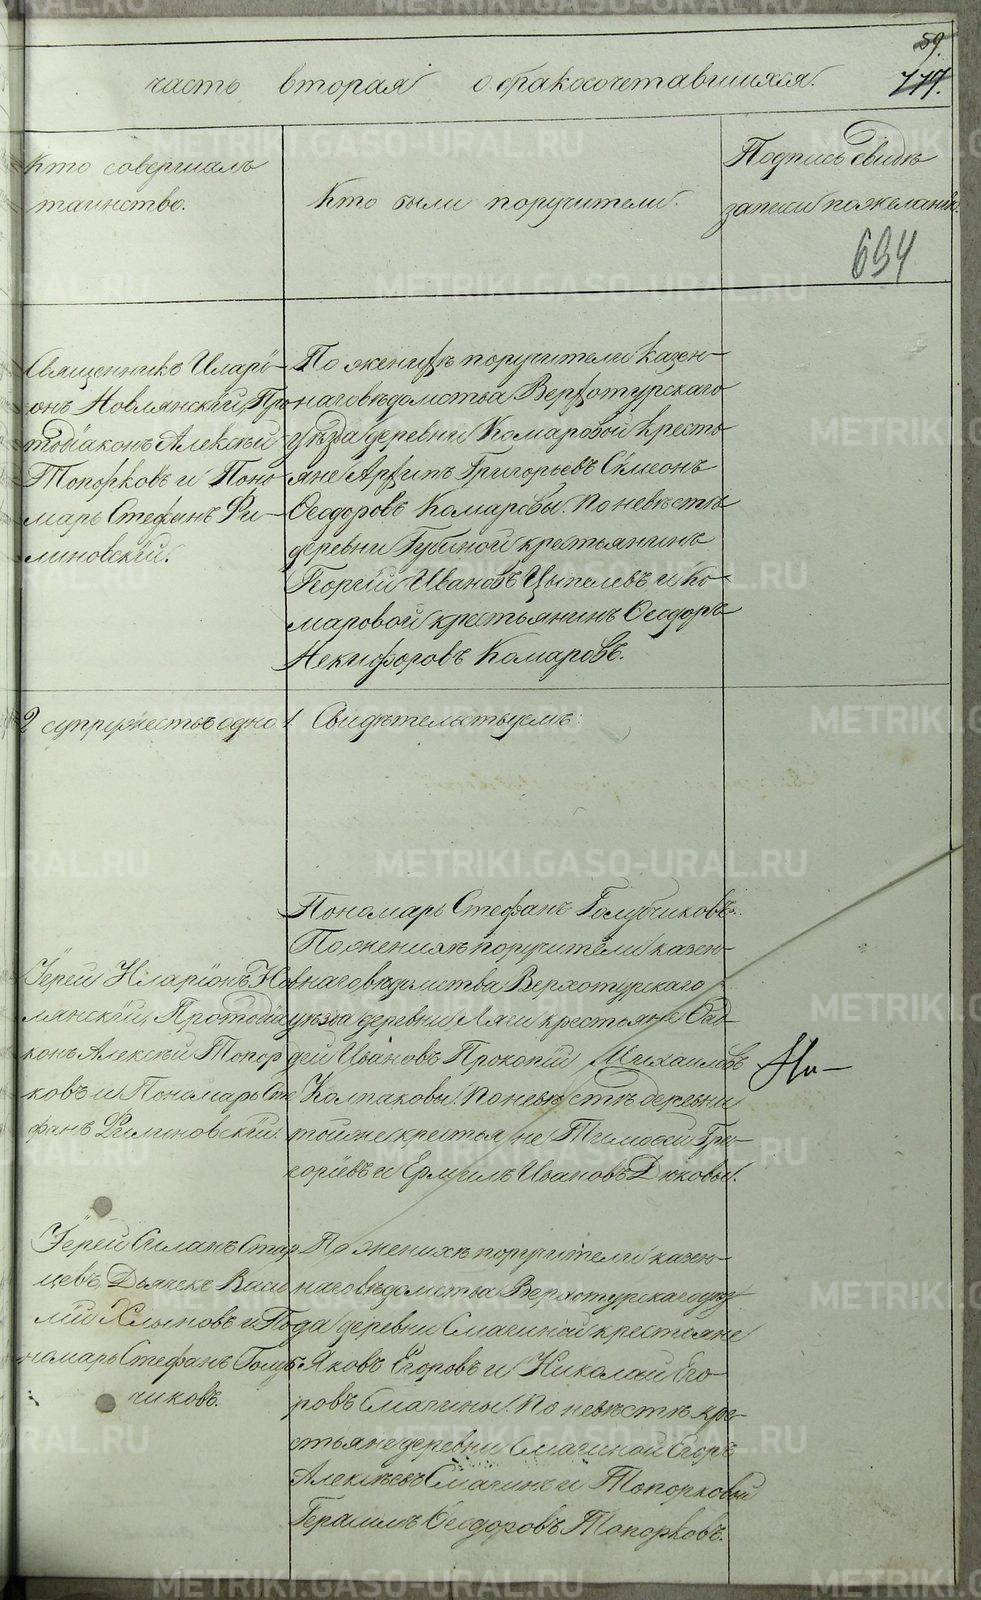 59.
часть вторая о бракосочетавшихся.
777.
Кто совершалъ
таинство.
Кто были поручители.
Подпись свидѣ
записи по желанію.
694
Священникъ Иларі-
онъ Новлянскій, Про
тодіаконъ Алексѣй
Топорковъ и Поно
марь Стефанъ Фи-
линовскій.
По женихѣ поручители казен-
наго вѣдомства Верхотурскаго
уѣзда деревни Комаровой кресть
яне Архипъ Григорьевъ Симеонъ
Ѳеодоровъ Комаровы. По невѣстѣ
деревни Губиной крестьянинъ
Георгій Ивановъ Цыпелевъ и Ко-
маровой крестьянинъ Ѳеодоръ
Некифоровъ Комаровъ.
2 супружествъ одно 1. Свидѣтельствуемъ:
Пономарь Стефанъ Голубчиковъ.
Іерей Иларіонъ Нов
лянскій, Протодіа
конъ Алексѣй Топор
ковъ и Пономарь Сте
фанъ Филиновскій.
По женихѣ поручители казен-
наго вѣдомства Верхотурскаго
уѣзда деревни Ляги крестьяне Ѳад-
дей Ивановъ Прокопій Михаиловъ
Колпаковы. По невѣстѣ деревни
той же крестьяне Тимоѳей Гри-
горіевъ и Ермилъ Ивановъ Дюковы.
Іерей Стар
цевъ Дьячекъ Васи
лій Хлыновъ и По
номарь Стефанъ Голуб
чиковъ.
По женихѣ поручители казен-
наго вѣдомства Верхотурскаго уѣз
да деревни Смагиной крестьяне
Яковъ Егоровъ и Николай Его-
ровъ Смагины. По невѣстѣ кре-
стьяне деревни Смагиной Егоръ
Алексѣевъ Смагинъ и Топорковой
Герасимъ Ѳеодоровъ Топорковъ.
METRIKI.GASO-URAL.RU